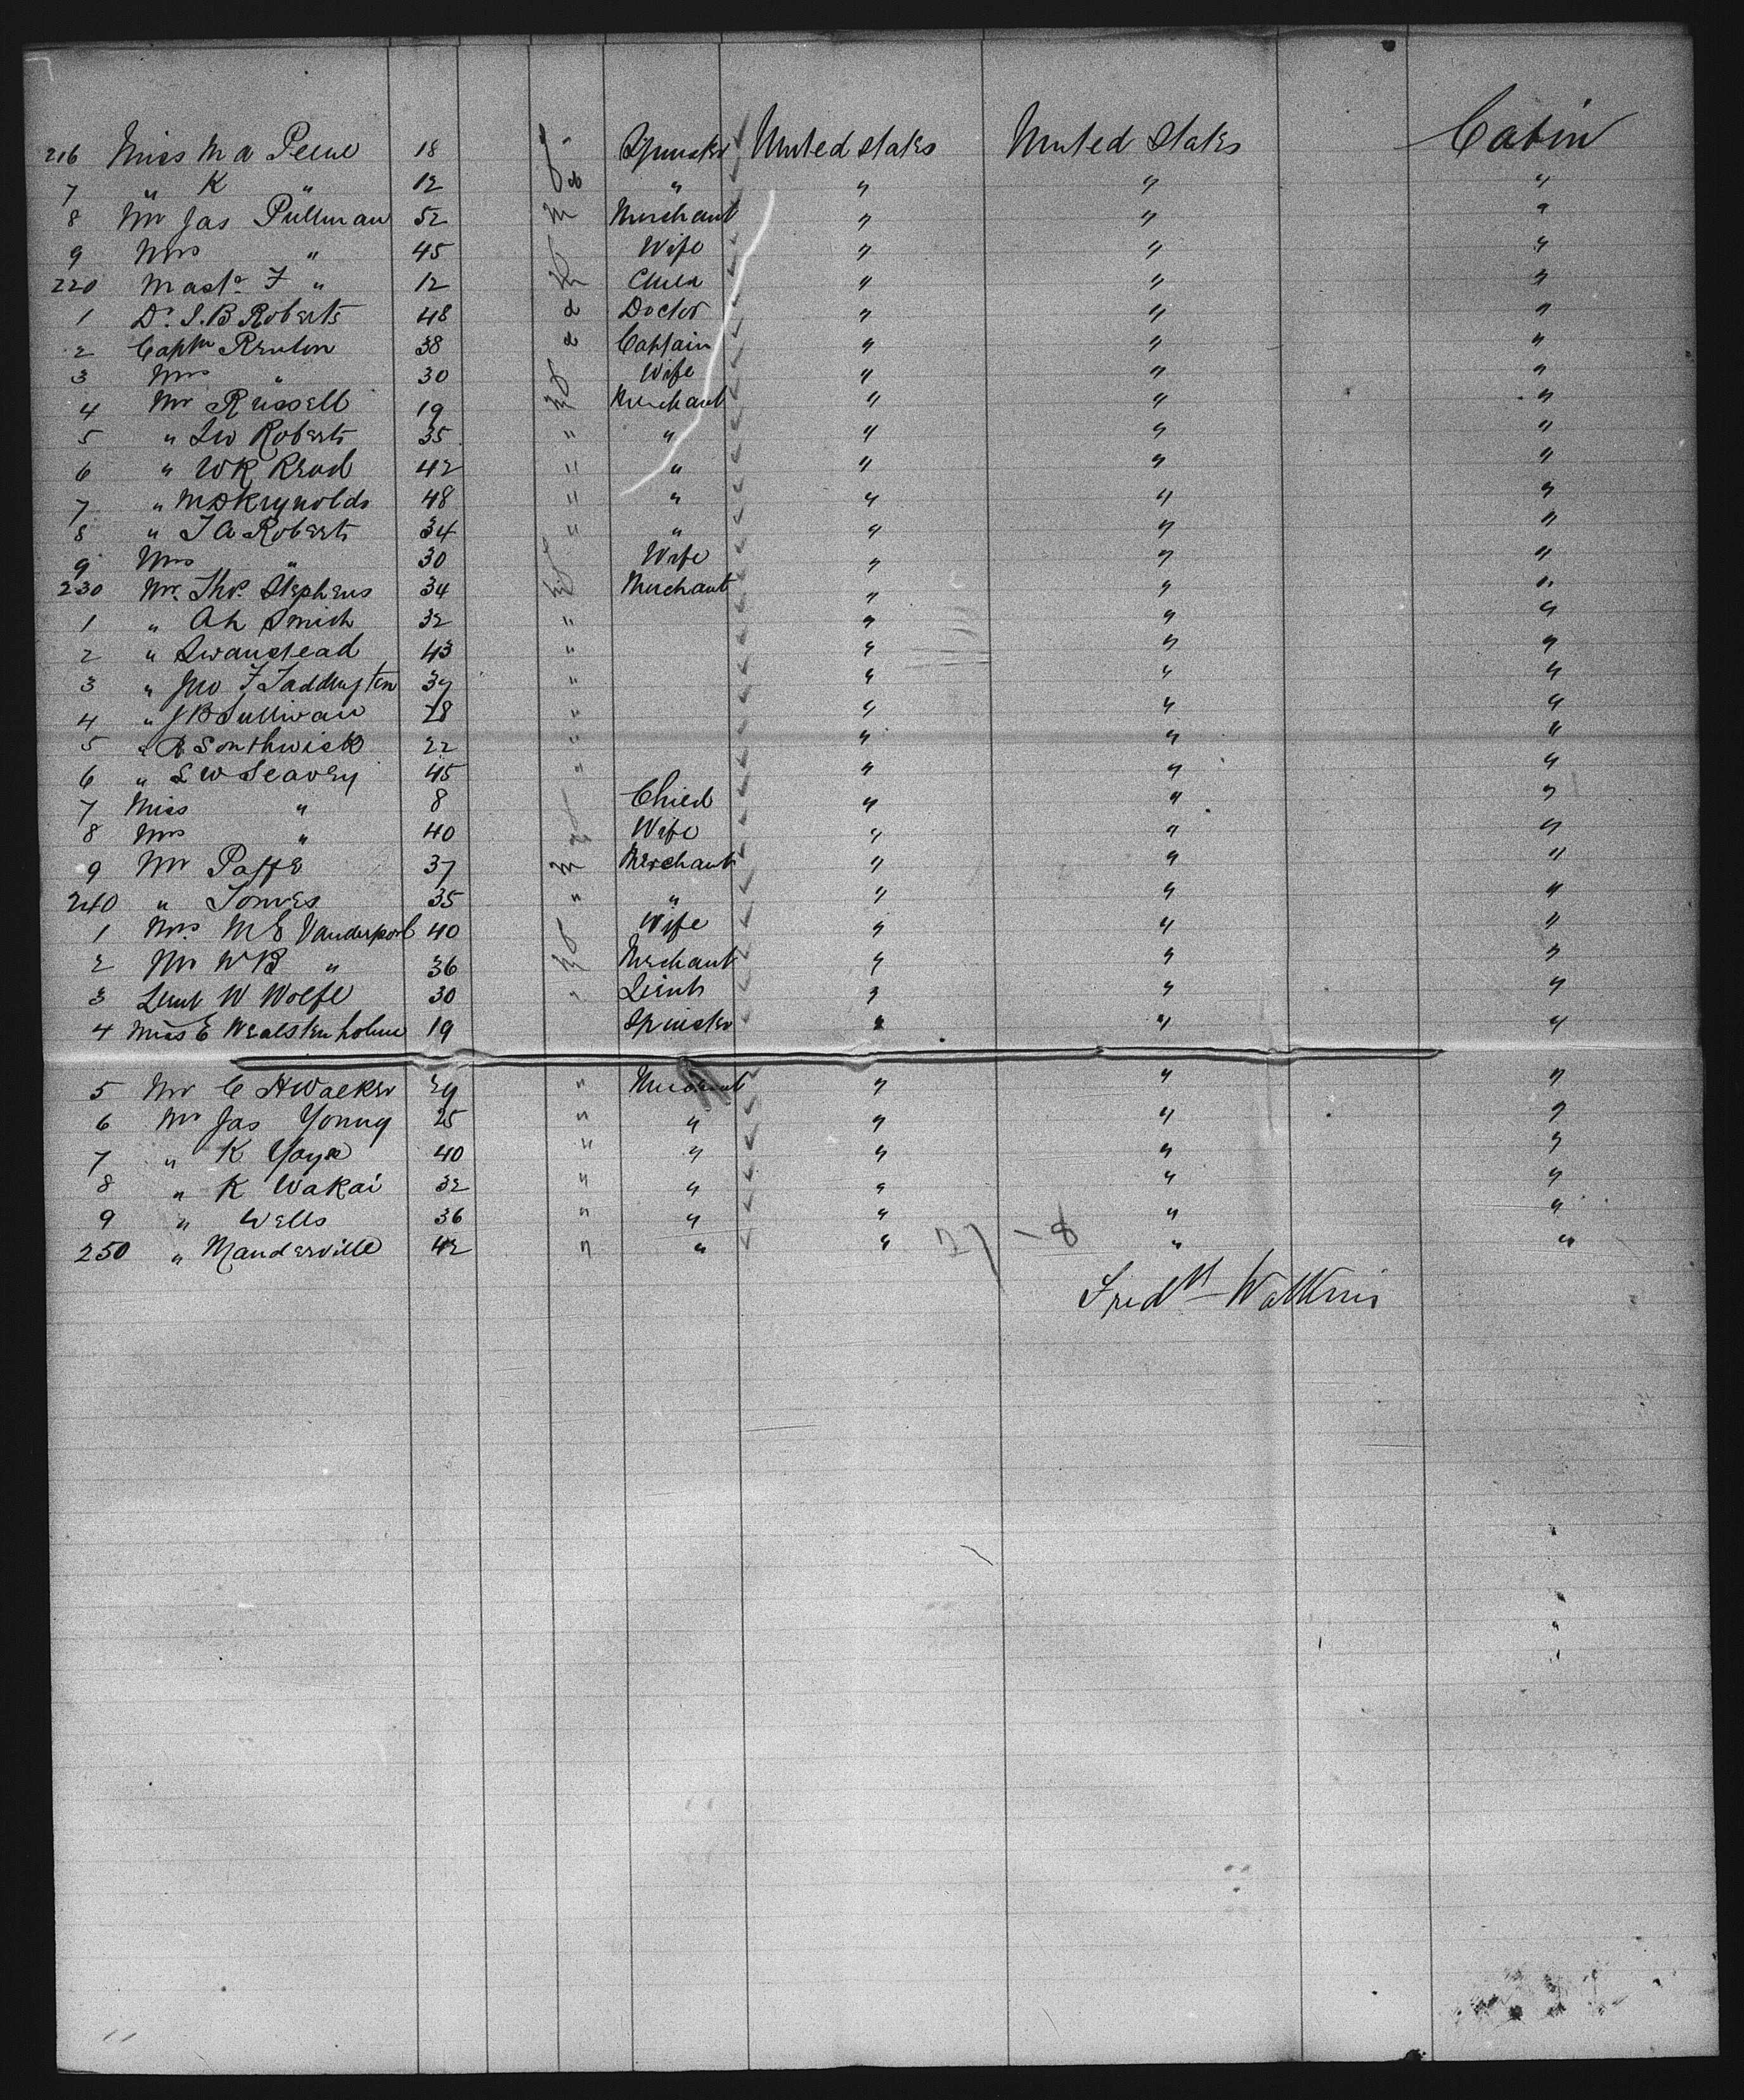 216 Miss M A 18 f Spinster United States United States Cabin
7 " K " 12 " " " "
8 Mr Jas Pullman 52 m Merchant " " "
9 Mrs " 45 f Wife " " "
220 Mastr F " 12 m Child " " "
1 Dr. S. B Roberts 48 d Doctor " " "
2 Captn Renton 38 d Captain " " "
3 Mrs " 30 f Wife " " "
4 Mr Russell 19 m Merchant " " "
5 " L W Roberts 35 " " " " "
6 " W R 42 " " " " "
7 " M D Reynolds 48 " " " " "
8 " T A Roberts 34 " " " " "
9 Mrs " 30 f Wife " " "
230 Mr. Thos. Stephens 34 m Merchant " " "
1 " A h Smith 32 " " " "
2 " Swanstead 43 " " " "
3 " Jno F Taddington " " " "
4 " J B Sullivan 28 " " " "
5 " R Southwick 22 " " " "
6 " L W Seavey 45 " " " "
7 Miss " 8 f Child " " "
8 Mrs " 40 Wife " " "
9 Mr 37 m Merchant " " "
240 " Tomes 35 " " " " "
1 Mrs. M E Vanderpool 40 f Wife " " "
2 Mr W B " 36 m Merchant " " "
3 Lieut W Wolfe 30 " Lieut " " "
4 Miss E Wealstenholme 19 Spinster " " "
5 Mr C H Walker 29 " Merchant " " "
6 Mr Jas Young 25 " " " " "
7 " K 40 " " " " "
8 " K Wakai 32 " " " " "
9 " Wells 36 " " " " "
250 " Manderville 42 " " " " "
27 - 8
Fredk Watkins